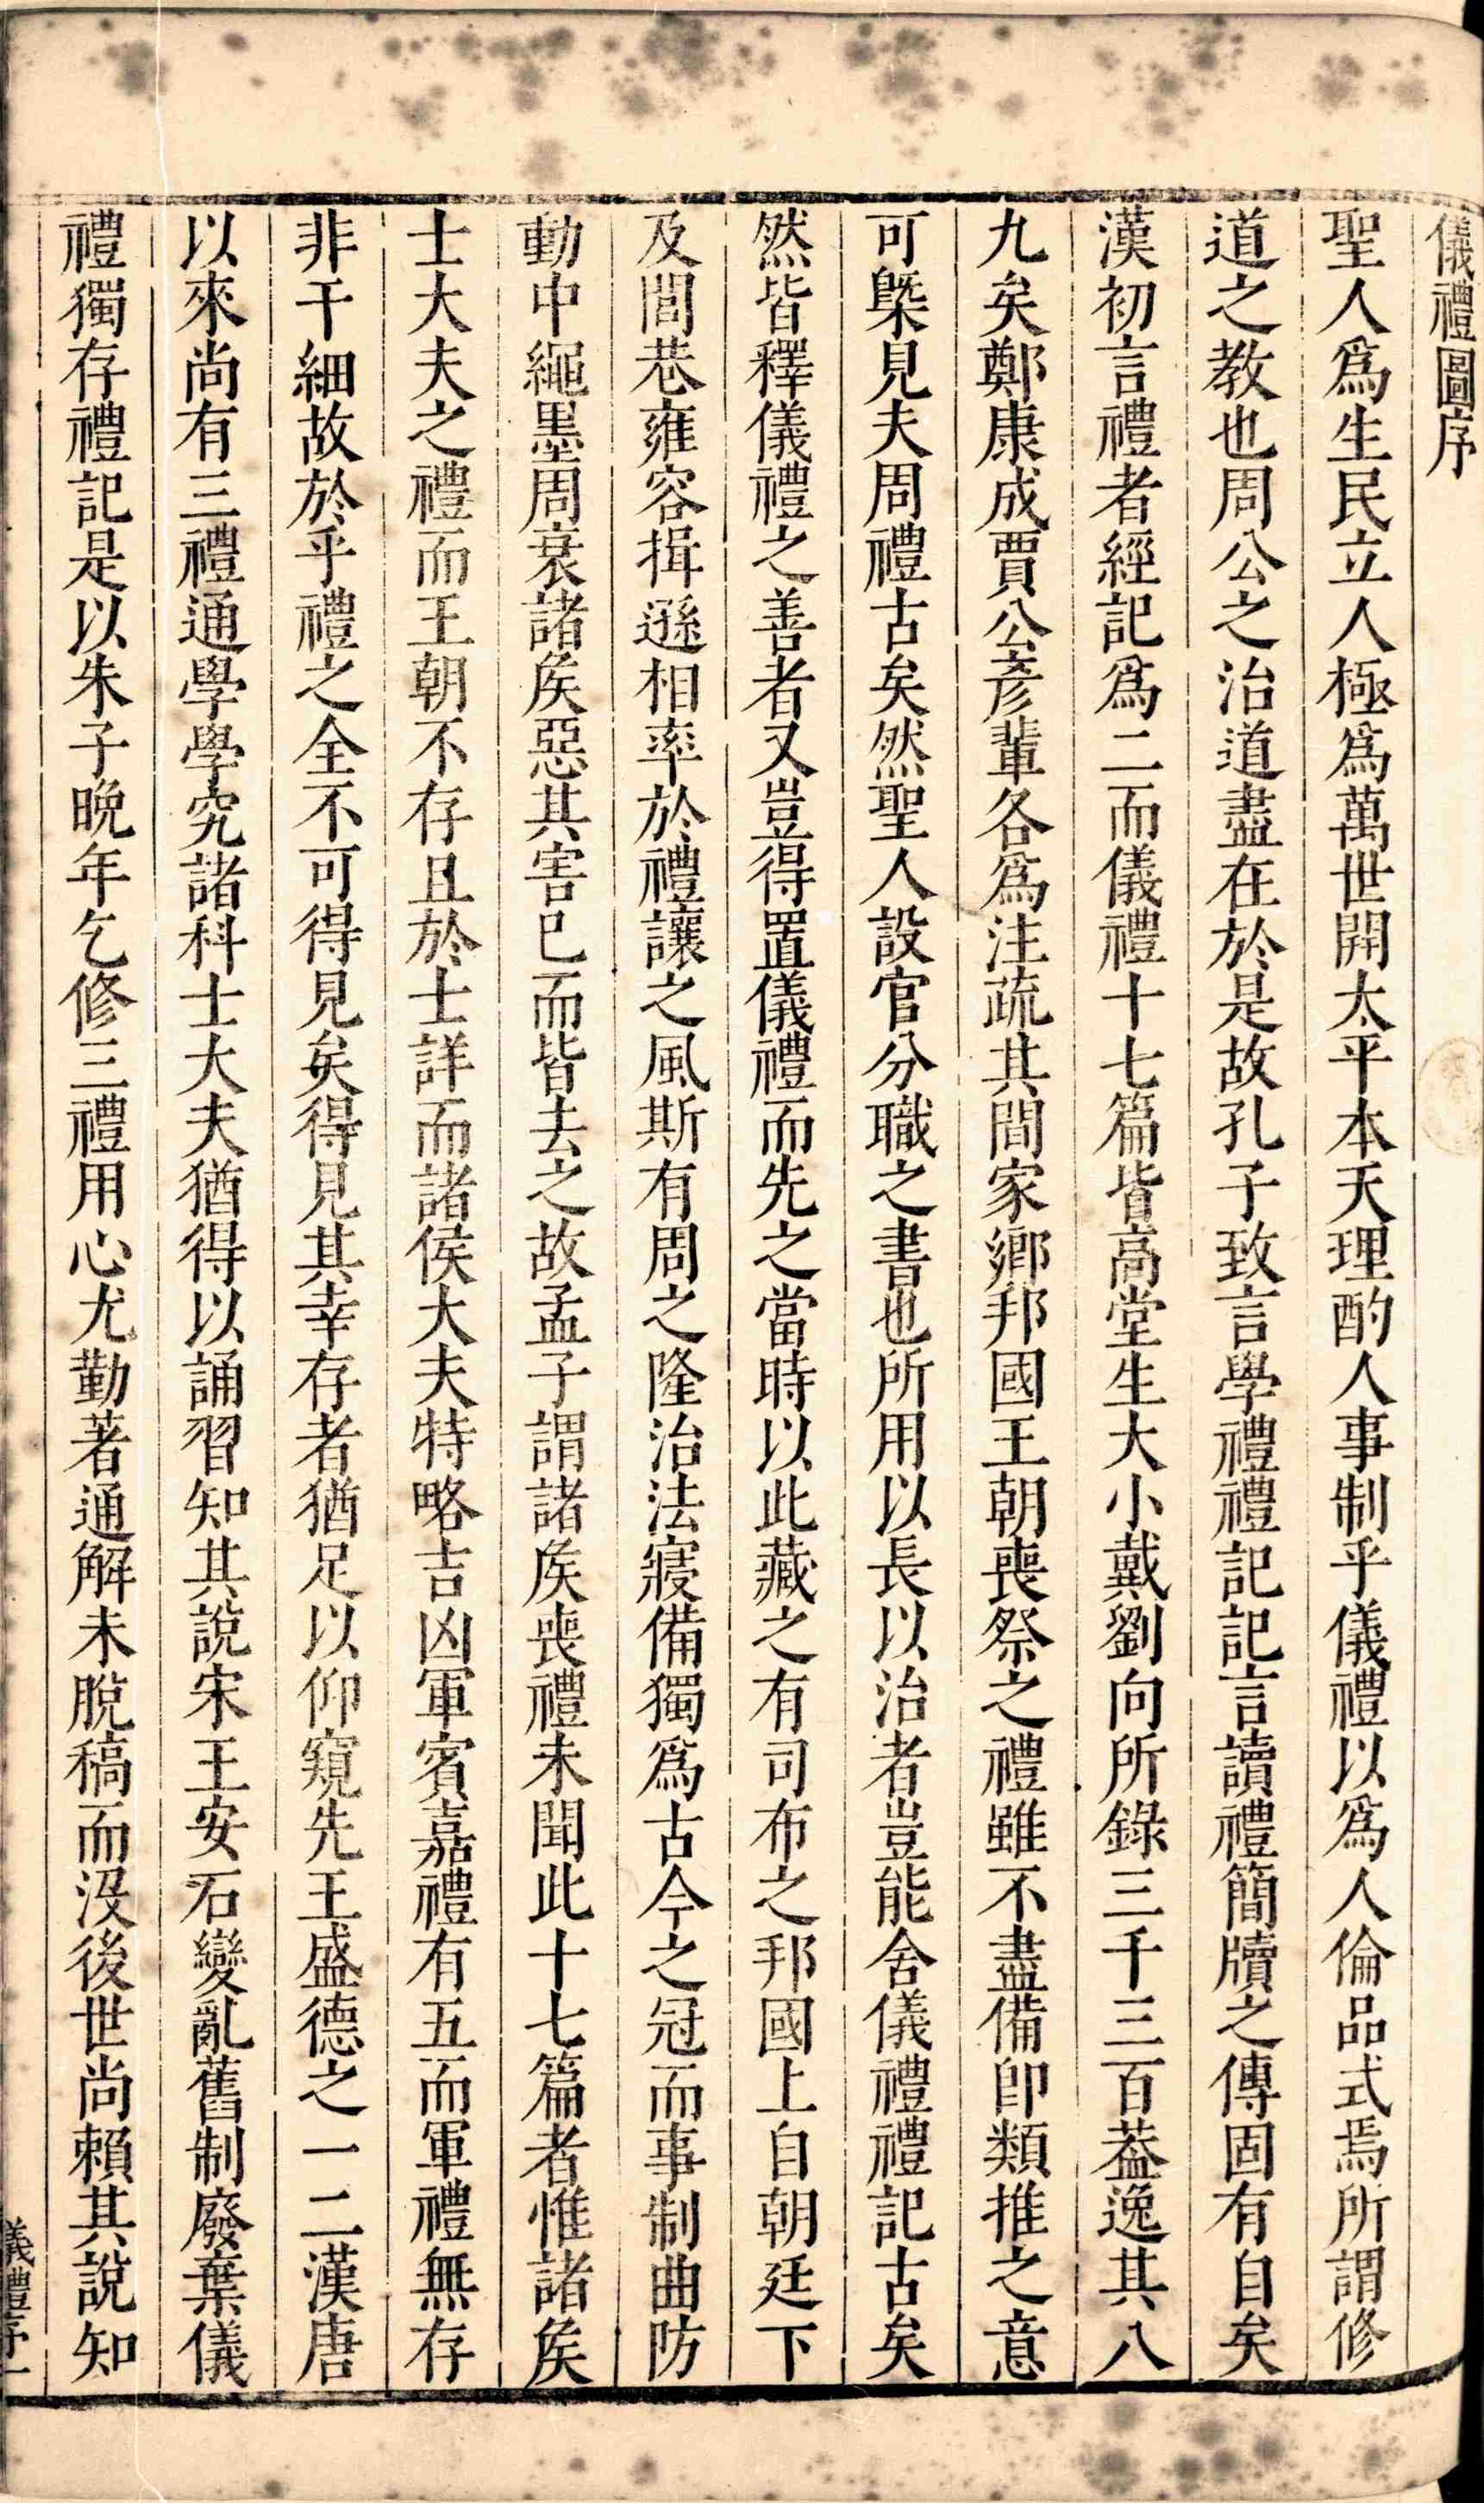 儀禮圖序
聖人爲生民立人極爲萬世開太平本天理酌人事制乎儀禮以爲人倫品式焉所謂修
道之教也周公之治道盡在於是故孔子致言學禮禮記記言讀禮簡牘之傳固有自矣
漢初言禮者經記爲二而儀禮十七篇皆高堂生大小戴劉向所錄三千三百葢逸其八
九矣鄭康成賈公彥輩各爲注疏其間家鄉邦國王朝喪祭之禮雖不盡備卽類推之意
可槩見夫周禮古矣然聖人設官分職之書也所用以長以治者豈能舍儀禮禮記古矣
然皆釋儀禮之善者又豈得置儀禮而先之當時以此藏之有司布之邦國上自朝廷下
及閭巷雍容揖遜相率於禮讓之風斯有周之隆治法寖備獨爲古今之冠而事制曲防
動中繩墨周衰諸矦惡其害已而皆去之故孟子謂諸矦喪禮未聞此十七篇者惟諸矦
士大夫之禮而王朝不存且於士詳而諸侯大夫特略吉凶軍賓嘉禮有五而軍禮無存
非干細故於乎禮之全不可得見矣得見其幸存者猶足以仰窺先王盛德之一二漢唐
以來尚有三禮通學學究諸科士大夫猶得以誦習知其說宋王安石變亂舊制廢棄儀
禮獨存禮記是以朱子晚年乞修三禮用心尤勤著通解未脫稿而沒後世尚賴其說知
儀禮序一